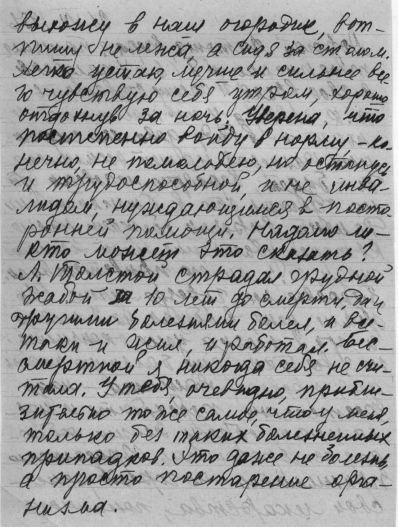 выхожу в наш огородик, вот-
пишу не лежа, а сидя за столом.
Легко устаю, лучше и сильнее все-
го чувствую себя утром, хорошо
отдохнув за ночь. Уверена, что
постепенно войду в норму – ко-
нечно, не помолодею, но останусь
и трудоспособной, и не инва-
лидом, нуждающимся в посто-
ронней помощи. Надолго ли –
кто может это сказать?
Л. Толстой страдал грудной
жабой за 10 лет до смерти, да и
другими болезнями болел, и все-
таки и жил, и работал. Бес-
смертной я никогда себя не счи-
тала. У тебя, очевидно, прибли-
зительно то же самое, что у меня,
только без таких болезненных
припадков. Это даже не болезнь,
а просто постарение орга-
низма.